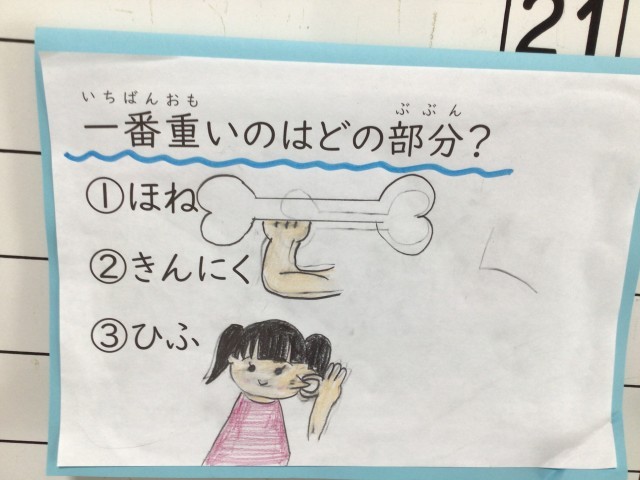 21
いちばんおも ぶぶん
一番重いのはどの部分?
①ほね
②きんにく
③ひふ